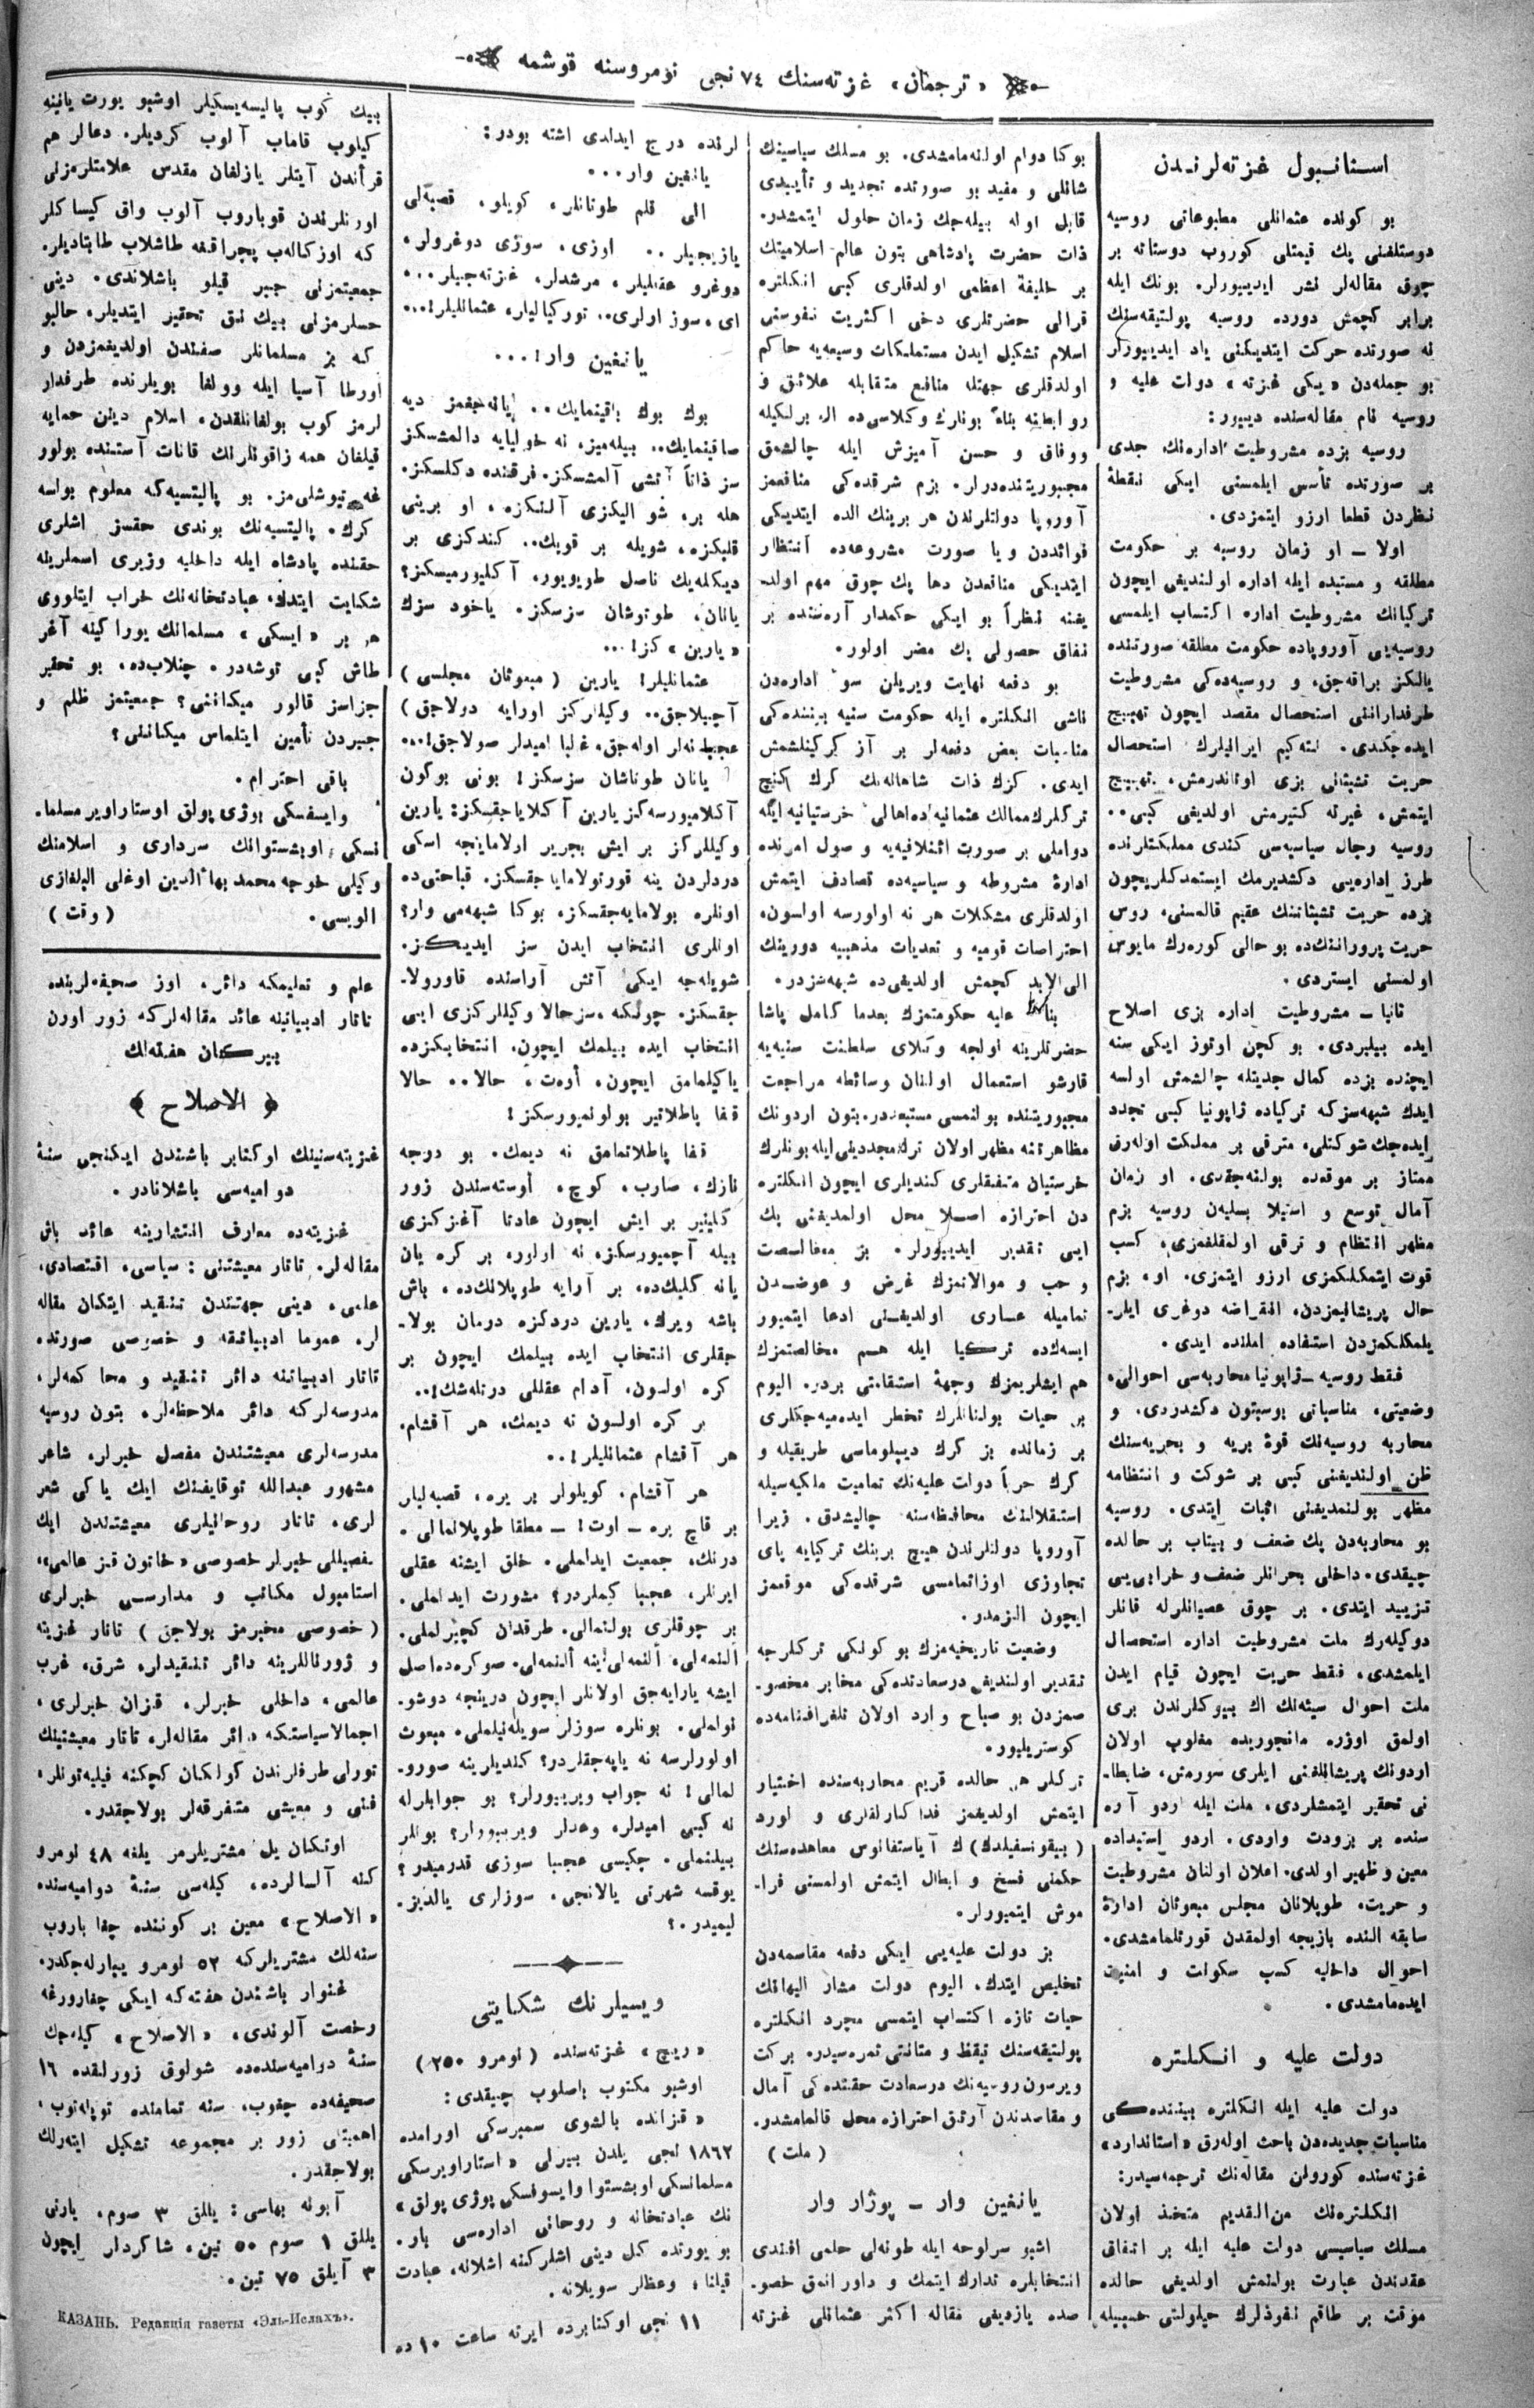 « ترجمان » غزته‌سنك ٧٤ نجی نومروسنه قوشمه
استانبول غزته‌لرندن
بو كونده عثمانلی مطبوعاتی روسیه
دوستلغنی پك قیمتلی كوروب دوستانه بر
چوق مقاله‌لر نشر ایدییورلر. بونك ایله
برابر كچمش دورده روسیه پولتیقه‌سنك
نه صورتده حركت ایتدیكنی یاد ایدییورلر
بو جمله‌دن « یكی غزته » دولت علیه و
روسیه نام مقاله‌سنده دییور:
روسیه بزده مشروطیت اداره‌نك جدی
بر صورتده تأسس ایلمسنی ایكی نقطهٔ
نظردن قطعا ارزو ایتمزدی.
اولا ـ او زمان روسیه بر حكومت
مطلقه و مستبده ایله اداره اولندیغی ایچون
تركیانك مشروطیت اداره اكتساب ایلمسی
روسیه‌یی آوروپاده حكومت مطلقه صورتنده
یالكز براقه‌جق، و روسیه‌ده‌كی مشروطیت
طرفدارانی استحصال مقصد ایچون تهییج
ایده‌جكدی. نته‌كیم ایرانیلرك استحصال
حریت تشبثاتی بزی اوتاندرمش، تهییج
ایتمش، غیرته كتیرمش اولدیغی كبی..
روسیه رجال سیاسیه‌سی كندی مملكتلرنده
طرز اداره‌یی دكشدیرمك ایستمدكلریچون
بزده حریت تشبثاتنك عقیم قالمسنی، روس
حریت پروراننك‌ده بو حالی كوره‌رك مایوس
اولمسنی ایستردی.
ثانیا ـ مشروطیت اداره بزی اصلاح
ایده بیلیردی. بو كچن اوتوز ایكی سنه
ایچنده بزده كمال جدیتله چالشمش اولسه
ایدك شبهه‌سزكه تركیاده ژاپونیا كبی تجدد
ایده‌جك شوكتلی، مترقی بر مملكت اوله‌رق
ممتاز بر موقعده بولنه‌جقدی. او زمان
آمال توسع و استیلا بسلین روسیه بزم
مظهر انتظام و ترقی اولمقلغمزی، كسب
قوت ایتمكلكمزی ارزو ایتمزی. او، بزم
حال پریشانیمزدن، انقراضه دوغری ایلر-
یلمكلكمزدن استفاده املنده ایدی.
فقط روسیه ـ ژاپونیا محاربه‌سی احوالی،
وضعیتی، مناسباتی بوسبتون دكشدیردی. و
محاربه روسیه‌نك قوهٔ بریه و بحریه‌سنك
ظن اولندیغنی كبی بر شوكت و انتظامه
مظهر بولنمدیغنی اثبات ایتدی. روسیه
بو محاربه‌دن پك ضعف و بیتاب بر حالده
چیقدی. داخلی بحرانلر ضعف و خرابی‌یی
تزیید ایتدی. بر چوق عصیانلرله قانلر
دوكیله‌رك ملت مشروطیت اداره استحصال
ایلمشدی، فقط حریت ایچون قیام ایدن
ملت احوال سیئه‌نك اك بیوكلرندن بری
اولمق اوزره مانجوریده مغلوب اولان
اردونك پریشانلغنی ایلری سورمش، ضابطا-
نی تحقیر ایتمشلردی، ملت ایله اردو آره
سنده بر برودت واردی. اردو استبداده
معین و ظهیر اولدی. اعلان اولنان مشروطیت
و حریت، طوپلانان مجلس مبعوثان ادارهٔ
سابقه النده بازیچه اولمقدن قورتلمامشدی.
احوال داخلیه كسب سكونت و امنیت
ایده‌مامشدی.
دولت علیه و انكلتره
دولت علیه ایله انكلتره بیننده‌كی
مناسبات جدیده‌دن باحث اوله‌رق « استاندارد »
غزته‌سنده كورولن مقاله‌نك ترجمه‌سیدر:
انكلتره‌نك من‌القدیم متخذ اولان
مسلك سیاسیسی دولت علیه ایله بر اتفاق
عقدندن عبارت بولنمش اولدیغی حالده
موقت بر طاقم نفوذلرك حیلولتی حسبیله
بوكا دوام اولنه‌مامشدی. بو مسلك سیاسینك
شانلی و مفید بو صورتده تجدید و تأییدی
قابل اوله بیله‌جك زمان حلول ایتمشدر.
ذات حضرت پادشاهی بتون عالم اسلامیتك
بر خلیفهٔ اعظمی اولدقلری كبی انكلتره
قرالی حضرتلری دخی اكثریت نفوسنی
اسلام تشكیل ایدن مستملكات وسیعه‌یه حاكم
اولدقلری جهتله منافع متقابله علائق و
روابطنه بناءً بونلرك وكلاسی‌ده ال برلكیله
ووفاق و حسن آمیزش ایله چالشمق
مجبوریتنده‌درلر. بزم شرقده‌كی منافعمز
آوروپا دولتلرندن هر برینك الده ایتدیكی
فوائددن ویا صورت مشروعه‌ده انتظار
ایتدیكی منافعدن دها پك چوق مهم اولد-
یغنه نظراً بو ایكی حكمدار آره‌سنده بر
نفاق حصولی پك مضر اولور.
بو دفعه نهایت ویریلن سو اداره‌دن
ناشی انكلتره ایله حكومت سنیه بیننده‌كی
مناسبات بعض دفعه‌لر بر آز كركینلشمش
ایدی. كرك ذات شاهانه‌نك كرك كنج
تركلرك ممالك عثمانیه‌ده اهالی خرستیانیه ایله
دواملی بر صورت ائتلافیه‌یه وصول امرنده
ادارهٔ مشروطه و سیاسیه‌ده تصادف ایتمش
اولدقلری مشكلات هر نه اولورسه اولسون،
احتراصات قومیه و تعدیات مذهبیه دورینك
الی‌الابد كچمش اولدیغی‌ده شبهه‌سزدر.
بناءً علیه حكومتمزك بعدما كامل پاشا
حضرتلرینه اولجه وكلای سلطنت سنیه‌یه
قارشو استعمال اولنان وسائطه مراجعت
مجبوریتنده بولنمسی مستبعددر. بتون اردونك
مظاهرتنه مظهر اولان ترك مجددینی ایله بونلرك
خرستیان متفقلری كندیلری ایچون انكلتره
دن احترازه اصلا محل اولمدیغنی پك
ایی تقدیر ایدییورلر. بز مخالصت
و حب و موالاتمزك غرض و عوضدن
تمامیله عاری اولدیغنی ادعا ایتمیور
ایسه‌كده تركیا ایله هم مخالصتمزك
هم ایشلریمزك وجههٔ استقامتی بردر. الیوم
بر حیات بولنانلرك تخطر ایده‌میه‌جكلری
بر زمانده بز كرك دیپلوماسی طریقیله و
كرك حرباً دولت علیه‌نك تمامیت ملكیه‌سیله
استقلالنك محافظه‌سنه چالیشدق. زیرا
آوروپا دولتلرندن هیچ برینك تركیایه پای
تجاوزی اوزاتمامسی شرقده‌كی موقعمز
ایچون الزمدر.
وضعیت تاریخیه‌مزك بو كونكی تركلرجه
تقدیر اولندیغی درسعادتده‌كی مخابر مخصو-
صمزدن بو صباح وارد اولان تلغرافنامه‌ده
كوستریلیور.
تركلر هر حالده قریم محاربه‌سنده اختیار
ایتمش اولدیغمز فداكارلقلری و لورد
( بیقونسفیلدك ) ك آیاستفانوس معاهده‌سنك
حكمنی فسخ و ابطال ایتمش اولمسنی فرا-
موش ایتمیورلر.
بز دولت علیه‌یی ایكی دفعه مقاسمه‌دن
تخلیص ایتدك. الیوم دولت مشار الیهانك
حیات تازه اكتساب ایتمسی مجرد انكلتره
پولتیقه‌سنك تیقظ و متانتی ثمره‌سیدر. بركت
ویرسون روسیه‌نك درسعادت حقنده‌كی آمال
و مقاصدندن آرتق احترازه محل قالمامشدر.
( ملت )
یانغین وار ـ پوژار وار
اشبو سرلوحه ایله طونه‌لی حلمی افندی
انتخابلره تدارك ایتمك و داورانمق خصو-
صده یازدیغی مقاله اكثر عثمانلی غزته
لرنده درج ایدلدی اشته بودر:
یانغین وار...
الی قلم طوتانلر، كویلو، قصبه‌لی
یازیجیلر.. اوزی، سوزی دوغرولر،
دوغرو عقللیلر، مرشدلر، غزته‌جیلر...
ای، سوز اولری.. توركیالیلر، عثمانلیلر!...
یانغین وار!...
بوك بوك باقینمایك.. یانه‌جغمز دیه
صاقینمایك.. بیله‌میز، نه خولیایه دالمشسكز
سز ذاتاً آتشی آلمشسكز. فرقنده دكلسكز.
هله بر، شو الیكزی آلنكزه، او برینی
قلبكزه، شویله بر قویك.. كندكزی بر
دیكلمه‌یك ناصل طویویور، آكلیورمیسكز؟
یانان، طوتوشان سزسكز. یاخود سزك
« یارین » كز!...
عثمانلیلر! یارین ( مبعوثان مجلسی )
آچیلاجق.. وكیللركز اورایه دولاجق )
عجبا نه‌لر اوله‌جق، غلبا امیدلر صولاجق!...
یانان طوتاشان سزسكز! بونی بوكون
آكلامیورسه‌كز یارین آكلایاجقسكز: یارین
وكیللركز بر ایش بجریر اولاماینجه اسكی
دردلردن ینه قورتولامایاجقسكز. قباحتی‌ده
اونلره بولامایه‌جقسكز، بوكا شبهه‌می وار؟
اونلری انتخاب ایدن سز ایدیكز.
شویله‌جه ایكی آتش آراسنده قاورولا-
جقسكز. چونكه، سز حالا وكیللركزی ایی
انتخاب ایده بیلمك ایچون، انتخابكزده
یاكیلمامق ایچون، أوه‌ت، حالا.. حالا
قفا پاطلاتیر بولونمیورسكز!
قفا پاطلاتمامق نه دیمك. بو درجه
نازك، صارپ، كوچ، أوسته‌سندن زور
كلینیر بر ایش ایچون عادتا آغزكزی
بیله آچمیورسكز، نه اولور، بر كره یان
یانه كلیك‌ده، بر آرایه طوپلانك‌ده، باش
باشه ویرك، یارین دردكزه درمان بولا-
جقلری انتخاب ایده بیلمك ایچون بر
كره اولسون، آدام عقللی درتله‌شك!..
بر كره اولسون نه دیمك، هر آقشام،
هر آقشام عثمانلیلر!..
هر آقشام، كویلولر بر یره، قصبه‌لیلر
بر قاچ یره ـ اوت! ـ مطلقا طوپلانمالی.
درنك، جمعیت ایدلملی. خلق ایشنه عقلی
ایرنلر، عجبا كیملردر؟ مشورت ایدلملی.
بر چوقلری بولنمالی. طرقدان كچیرلملی.
ألنمه‌لی، ألنمه‌لی ینه ألنمه‌لی. صوكره‌ده اصل
ایشه یارایه‌جق اولانلر ایچون درینجه دوشو-
نولملی. بونلره سوزلر سویله‌نیلملی، مبعوث
اولورلرسه نه یاپه‌جقلردر؟ كندیلرینه صورو-
لمالی! نه جواب ویرییورلر؟ بو جوابلرله
نه كبی امیدلر، وعدلر ویرییورلر؟ بونلر
بیلنملی. چكیسی عجبا سوزی قدرمیدر؟
یوقسه شهرتی یالانجی، سوزلری یالدیز-
لیمیدر.؟
ویسیلرنك شكایتی
« ریچ » غزته‌سنده ( نومرو ٢٥٠ )
اوشبو مكتوب باصلوب چیقدی:
« قزانده بالشوی سمبرسكی اورامده
١٨٦٢ نجی یلدن بیرلی « استاراویرسكی
مسلمانسكی اوبشستوا وایسوفسكی بوژی پولق »
نك عبادتخانه و روحانی اداره‌سی بار.
بو یورتده كل دینی اشلركنه اشلانه، عبادت
قیلنا، وعظلر سویلانه.
١١ نجی اوكتابرده ایرته ساعت ١٠ ده
بیك كوب پالیسه‌یسكیلر اوشبو یورت یانینه
كیلوب قاماب آلوب كردیلر. دعالر هم
قرأندن آیتلر یازلغان مقدس علامتلرمزنی
اورنلرندن قوباروب آلوب واق كیساكلر
كه اوزكالاب پچراقغه طاشلاب طابتادیلر.
جمعیتمزنی جبر قیلو باشلاندی. دینی
حسلرمزنی بیك نق تحقیر ایتدیلر. حالبو
كه بز مسلمانلر صفندن اولدیغمزدن و
اورطا آسیا ایله وولغا بویلرنده طرفدار
لرمز كوب بولغانلقدن، اسلام دینن حمایه
قیلغان همه زاقونلرنك قانات آستنده بولور
غه تیوشلی‌مز. بو پالیتسیه‌گه معلوم بولسه
كرك. پالیتسیه‌نك بوندی حقسز اشلری
حقنده پادشاه ایله داخلیه وزیری اسملرینه
شكایت ایتدك. عبادتخانه‌نك خراب ایتلووی
هر بر « ایسكی » مسلماننك یوراكینه آغر
طاش كبی توشه‌در. چنلاب‌ده، بو تحقیر
جزاسز قالور میكانی؟ جمعیتمز ظلم و
جبردن تأمین ایتلماس میكانی؟
باقی احترام.
وایسفسكی بوژی پولق اوستاراویر مسلما-
نسكی اوبشستوانك سرداری و اسلامنك
وكیلی خوجه محمد بهاءالدین اوغلی البلغاری
الویسی. ( وقت )
علم و تعلیمكه دائر، اوز صحیفه‌لرینده
تاتار ادبیاتینه عائد مقاله‌لركه زور اورن
بیركان هفته‌لك
﴿ الاصلاح ﴾
غزیته‌سنینك اوكتابر باشندن ایكنجی سنهٔ
دوامیه‌سی باشلانادر.
غزیته‌ده معارف انتشارینه عائد باش
مقاله‌لر. تاتار معیشتنی: سیاسی، اقتصادی،
علمی، دینی جهتندن تنقید ایتكان مقاله
لر. عموما ادبیاتقه و خصوصی صورتده
تاتار ادبیاتنه دائر تنقید و محاكمه‌لر،
مدرسه‌لركه دائر ملاحظه‌لر. بتون روسیه
مدرسه‌لری معیشتندن مفصل خبرلر، شاعر
مشهور عبدالله توقایفنك ایك یاكی شعر
لری. تاتار روحانیلری معیشتندن ایك
تفصیللی خبرلر خصوصی « خاتون قز عالمی »،
استامبول مكاتب و مدارسی خبرلری
( خصوصی مخبرمز بولاجق ) تاتار غزیته
و ژورناللرینه دائر تنقیدلر، شرق، غرب
عالمی، داخلی خبرلر. قزان خبرلری،
اجمالا سیاستكه دائر مقاله‌لر، تاتار معیشتینك
تورلی طرفلرندن كولكان كچكنه فیلیه‌تونلر،
فنی و معیشی متفرقه‌لر بولاجقدر.
اوتكان یل مشتریلرمز یلغه ٤٨ نومرو
كنه آلسالرده، كیله‌سی سنهٔ دوامیه‌سنده
« الاصلاح » معین بر كوننده چغا باروب
سنه‌لك مشتریلركه ٥٢ نومرو ییبارله‌جكدر.
غنوار باشندن هفته‌كه ایكی چغارورغه
رخصت آلوندی، « الاصلاح » كیله‌جك
سنهٔ دوامیه‌سنده‌ده شولوق زورلقده ١٦
صحیفه‌ده چغوب، سنه تمامنده توپله‌نوب،
اهمیتلی زور بر مجموعه تشكیل ایته‌رلك
بولاجقدر.
آبونه بهاسی: یللق ٣ صوم، یارتی
یللق ١ صوم ٥٠ تین، شاكردلر ایچون
٣ آیلق ٧٥ تین.
КАЗАНЬ. Редакція газеты «Эль-Ислахъ».